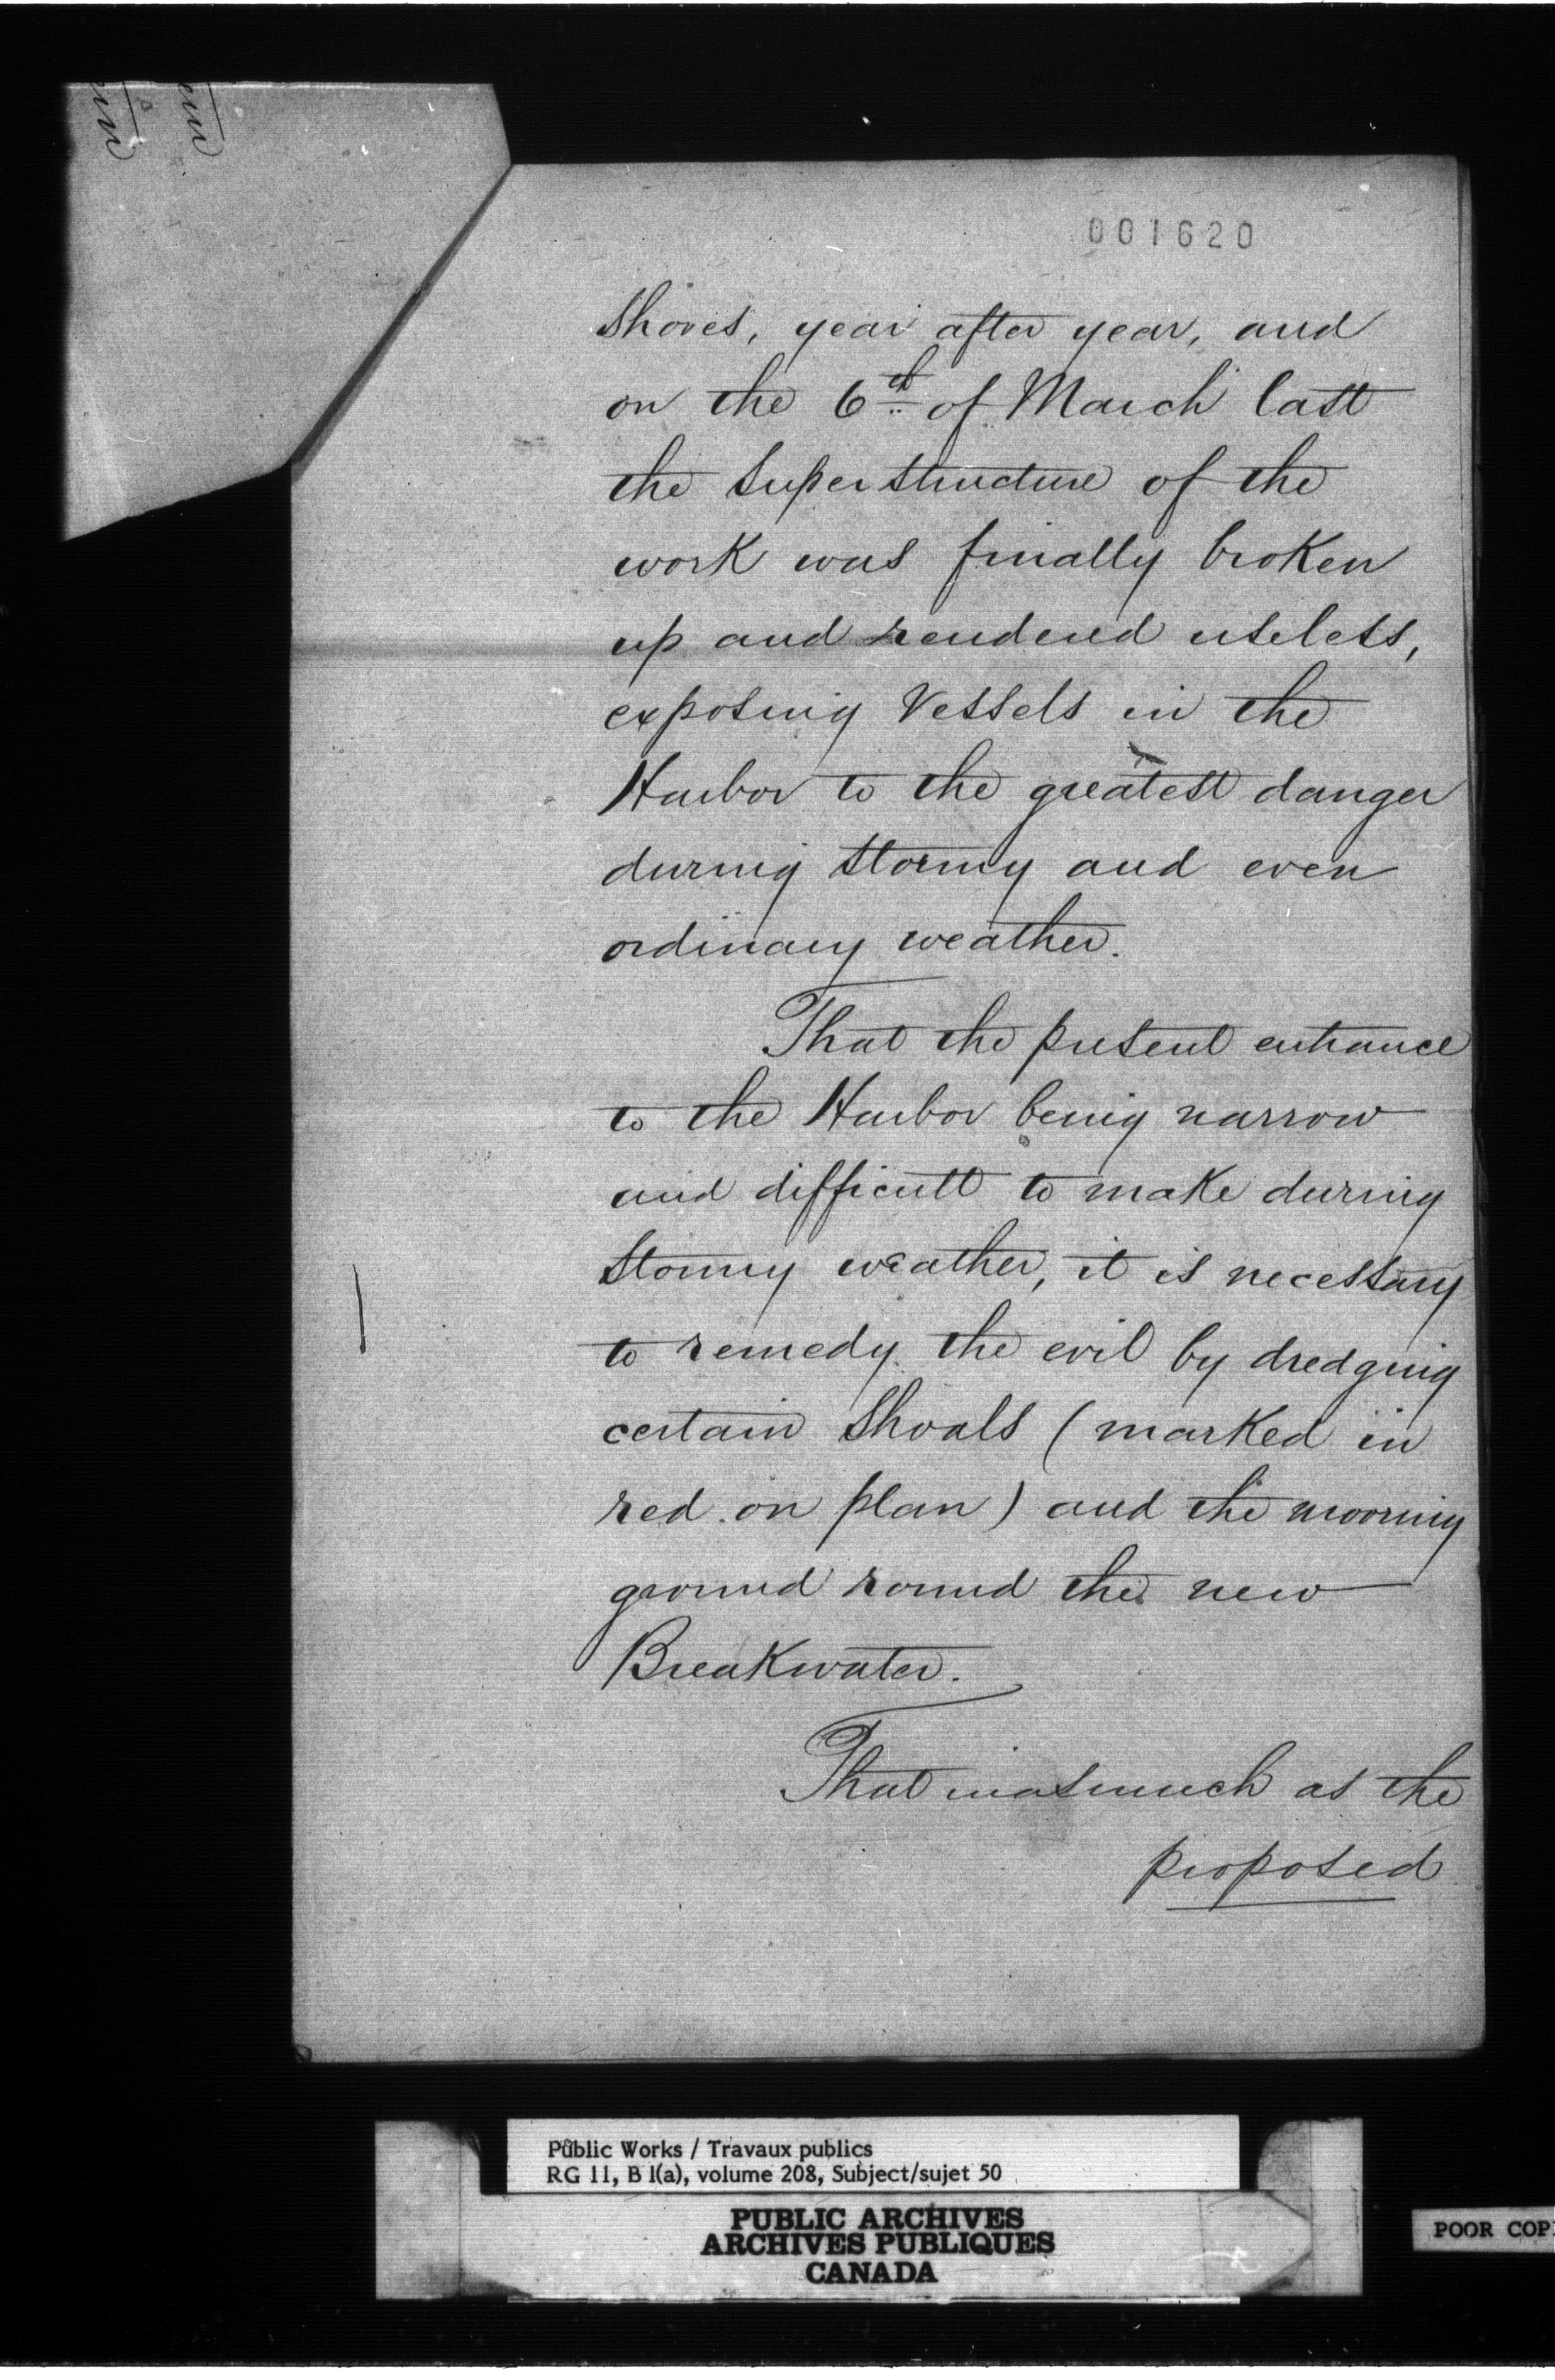 001620
shores, year after year, and
on the 6th of March last
the Superstructure of the
work was finally broken
up and rendered useless,
exposing Vessels in the
Harbor to the greatest danger
during stormy and even
ordinary weather.
That the present entrance
to the Harbor being narrow
and difficult to make during
Stormy weather, it is necessary
to remedy the evil by dredging
certain Shoals (marked in
red on plan) and the mooring
ground round the new
Breakwater.
That inasmuch as the
proposed
Public Works / Travaux publics
RG 11, B 1(a), volume 208, Subject/sujet 50
PUBLIC ARCHIVES
ARCHIVES PUBLIQUES
CANADA
POOR COP